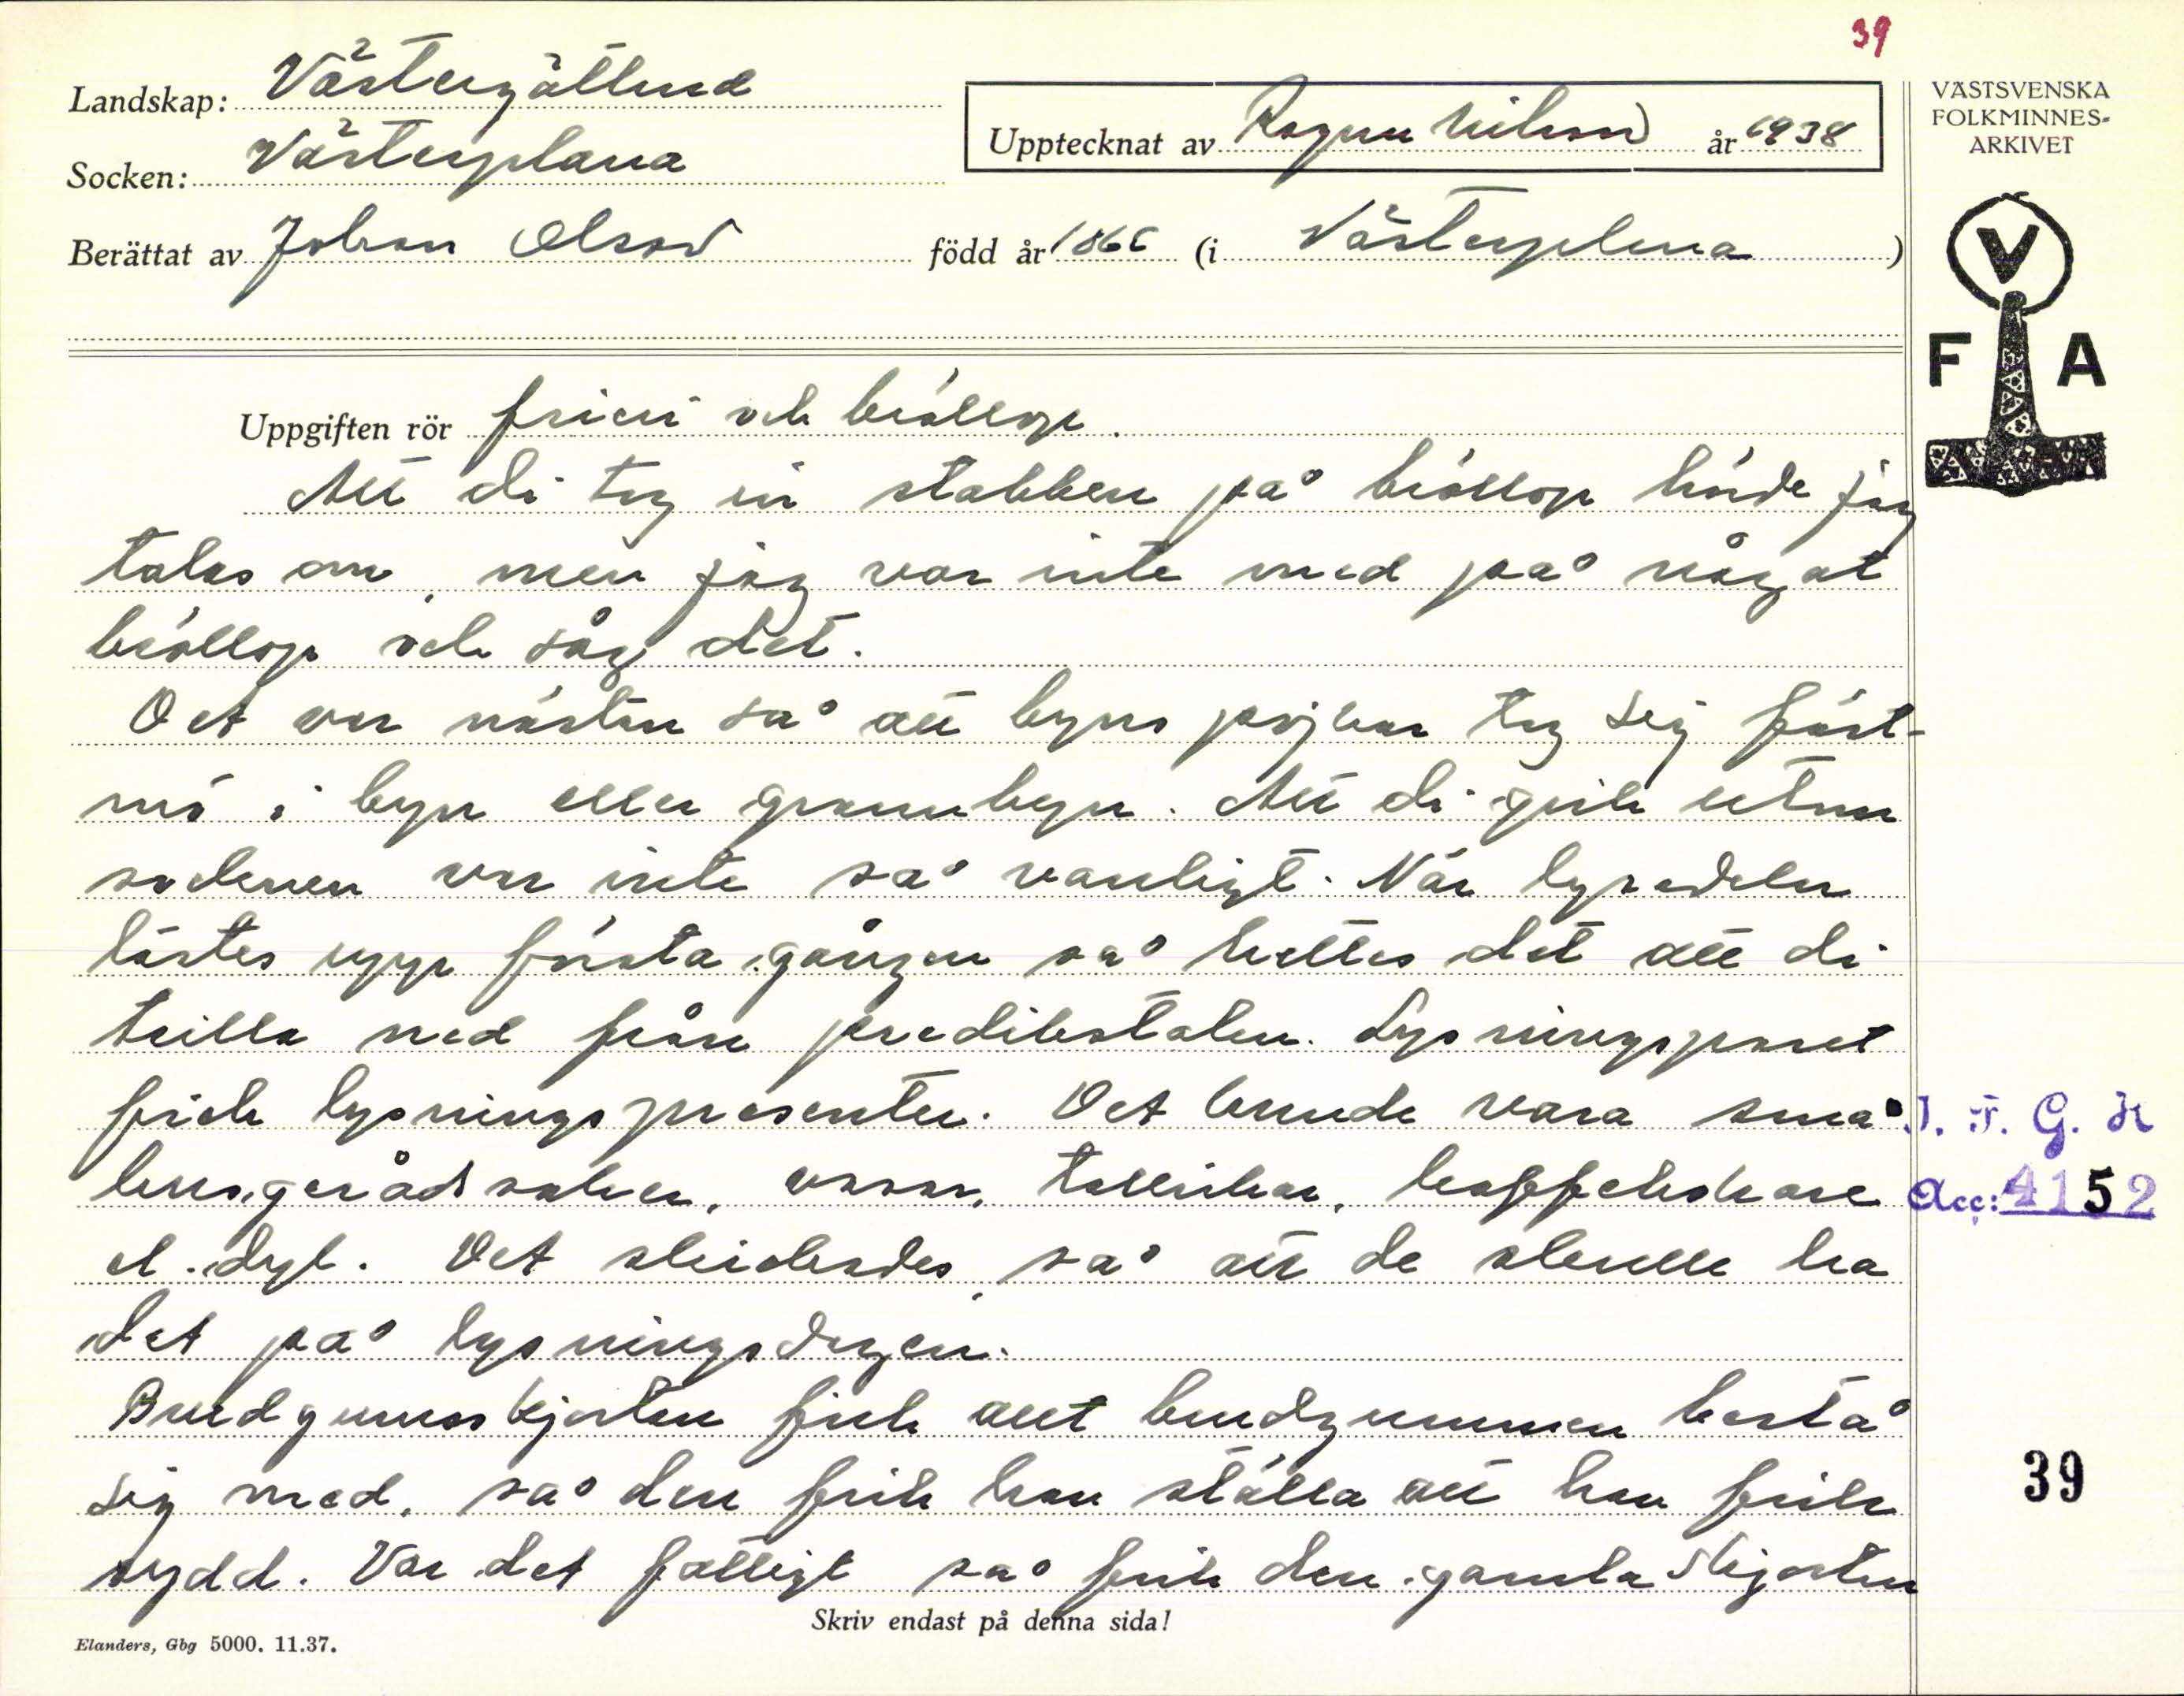 39
Landskap: Västergötland
Socken: Västerplana
Upptecknat av Ragnar Nilsson år 1938
Berättat av Johan Olsson född år 1866 (i Västerplana)
VÄSTSVENSKA
FOLKMINNES-
ARKIVET
V
F A
Uppgiften rör frieri och bröllop.
Att di tog in stabben på bröllop hörde jag
talas om, men jag var inte med på något
bröllop och såg det.
Det var nästan så att byns pojkar tog sig fäst-
mö i byn eller grannbyn. Att di gick utom
socknen var inte så vanligt. När lysedeln
lästes upp första gången så hettes det att di
trilla ned från predikstolen. Lysningsparet
fick lysningspresenter. Det kunde vara små
husgerådssaker, vaser, tallrikar, kaffekokare
el. dyl. Det skickades, så att de skulle ha
det på lysningsdagen.
Brudgumsskjortan fick allt brudgummen bestå
sig med, så den fick han ställa att han fick
sydd. Var det fattigt så fick den gamla skjortan
I. F. G. H
Acc: 4152
39
Skriv endast på denna sida!
Elanders, Gbg 5000. 11.37.